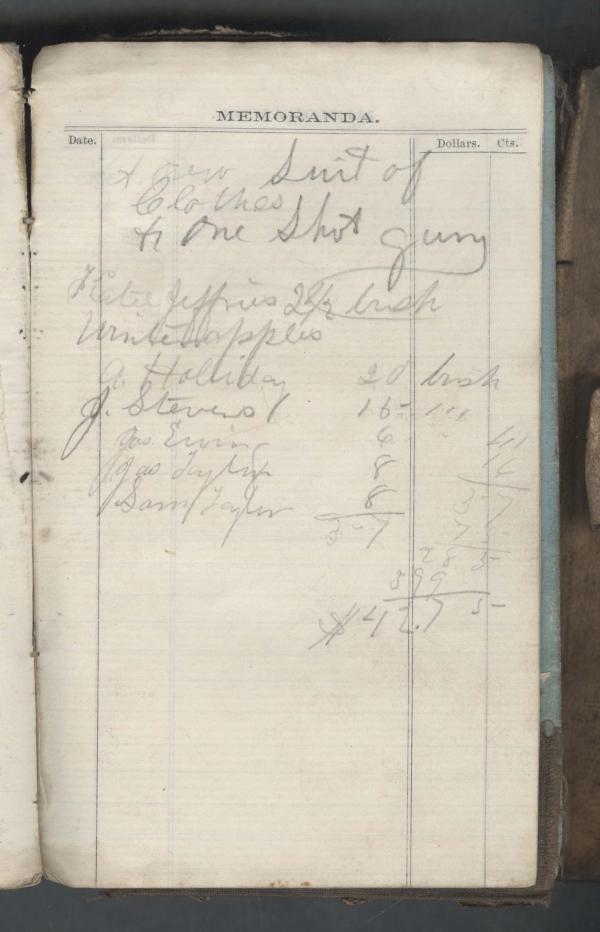 MEMORANDA.
Date. Dollars. Cts.
A new Suit of
Clothes
& One Shot gun
Katie Jeffries 2 1/2 bush
Winter apples
A. Holliday 20 bush
J. Stevens 15 " "
Jas Ewing 6
Jas Taylor 8
Sam Taylor 8
57
41
16
57
2 8 5
3 9 9
$42.75